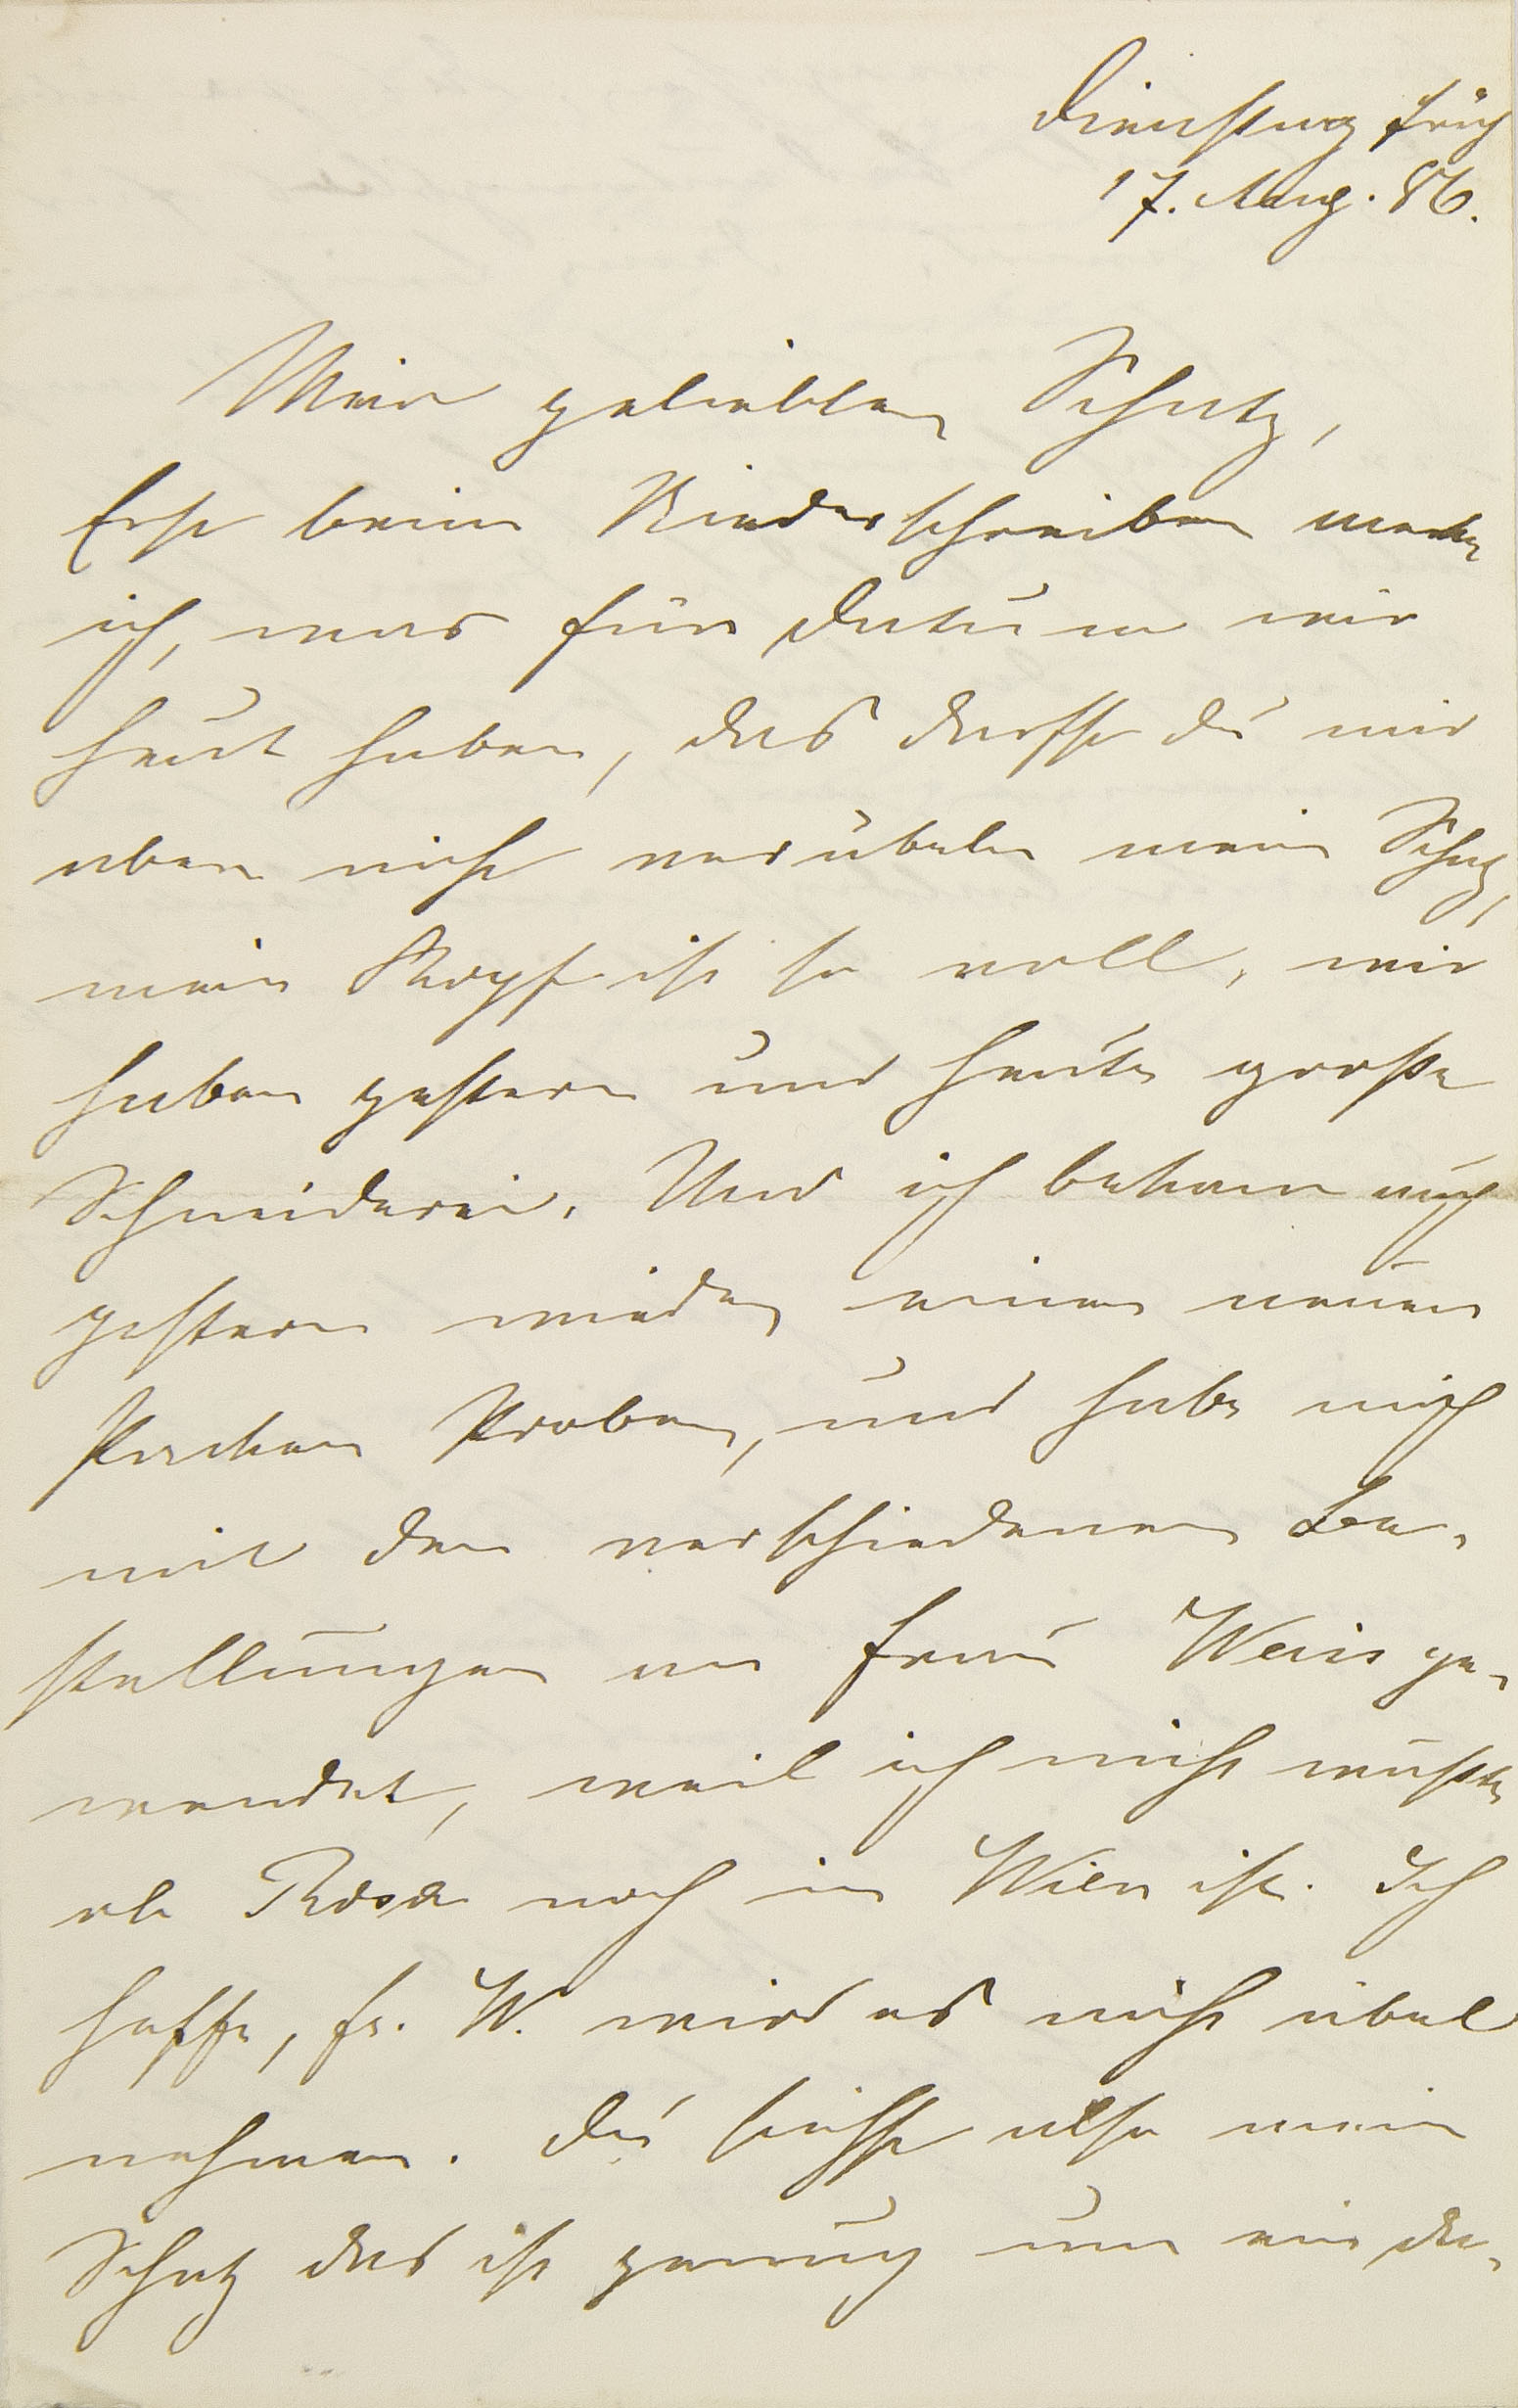 Dienstag früh
17. Aug. 86.
Mein geliebter Schatz,
Erst beim Niederschreiben merke
ich, was für Datum wir
heut haben, das darfst du mir
aber nicht verübeln mein Schatz,
mein Kopf ist so voll, wir
haben gestern und heute große
Schneiderei. Und ich bekam auch
gestern wieder einen neuen
Packen Proben, und habe mich
mit den verschiedenen Be-
stellungen an Frau Weiss ge-
wendet, weil ich nicht wußte
ob Rosa noch in Wien ist. Ich
hoffe, Fr. W. wird es nicht übel
nehmen. Du siehst also mein
Schatz das ist genug um ein Da-